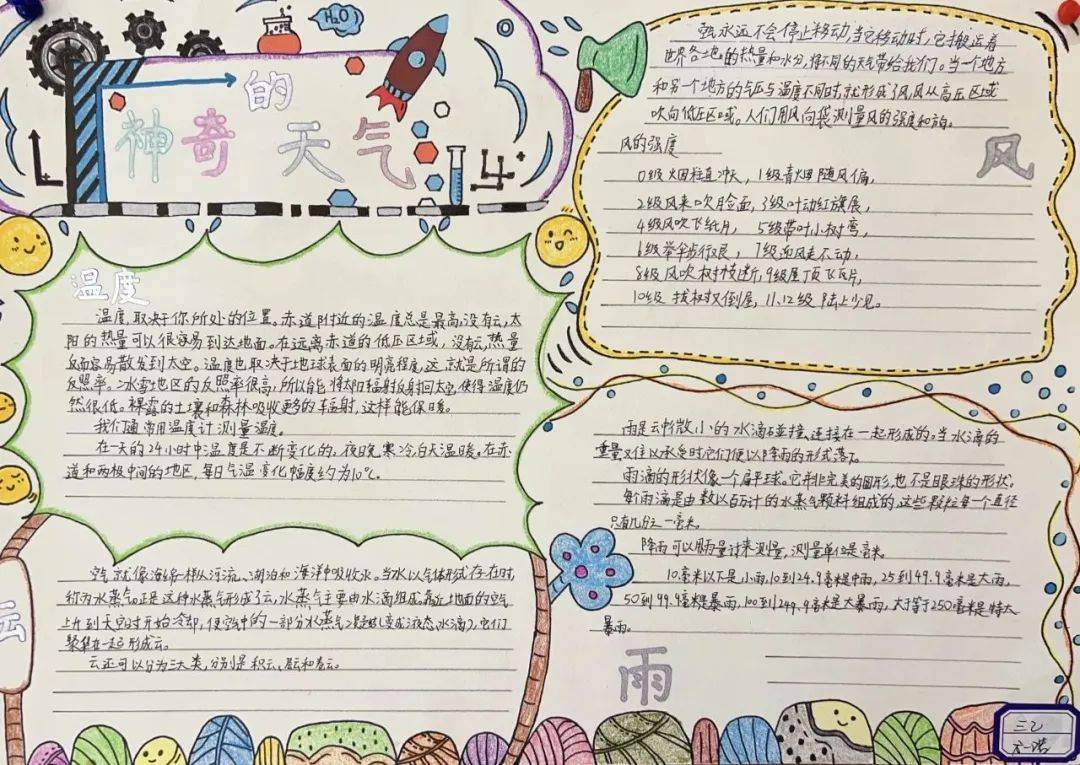 H₂O
神奇的天气
温度
温度取决于你所处的位置。赤道附近的温度总是最高,没有云,太
阳的热量可以很容易到达地面。在远离赤道的低压区域,没有云,热量
反而容易散发到太空。温度也取决于地球表面的明亮程度,这就是所谓的
反照率。冰雪地区的反照率很高,所以能将太阳辐射反射回太空,使得温度仍
然很低。裸露的土壤和森林吸收更多的辐射,这样能保暖。
我们通常用温度计测量温度。
在一天的24小时中温度是不断变化的,夜晚寒冷,白天温暖。在赤
道和两极中间的地区,每日气温变化幅度约为10℃。
云
空气就像海绵一样从河流、湖泊和海洋中吸收水。当水以气体形式存在时,
称为水蒸气。正是这种水蒸气形成了云,水蒸气主要由水滴组成。靠近地面的空气
上升到天空时开始冷却,使空气中的一部分水蒸气凝结(变成液态水滴),它们
聚集在一起形成云。
云还可以分为三大类,分别是积云、层云和卷云。
永远不会停止移动,当它移动时,它搬运着
世界各地的热量和水分,将不同的天气带给我们。当一个地方
和另一个地方的气压与温度不同时,就形成了风,风从高压区域
吹向低压区域。人们用风向袋测量风的强度和方向。
风
风的强度
0级烟柱直冲天,1级青烟随风偏,
2级风来吹脸面,3级叶动红旗展,
4级风吹飞纸片,5级带叶小树弯,
6级举伞步行艰,7级迎风走不动,
8级风吹树枝断,9级屋顶飞瓦片,
10级拔树又倒屋,11、12级陆上少见。
雨是云中微小的水滴碰撞、连接在一起形成的。当水滴的
重量难以承受时它们便以降雨的形式落下。
雨滴的形状像一个扁平球。它并非完美的圆形,也不是眼球的形状。
每个雨滴是由数以百万计的水蒸气颗料组成的,这些颗粒每一个直径
只有几分之一毫米。
降雨可以用雨量计来测量,测量单位是毫米。
10毫米以下是小雨,10到24.9毫米是中雨,25到49.9毫米是大雨,
50到99.9毫米是暴雨,100到249.9毫米是大暴雨,大于等于250毫米是特大
暴雨。
雨
三乙